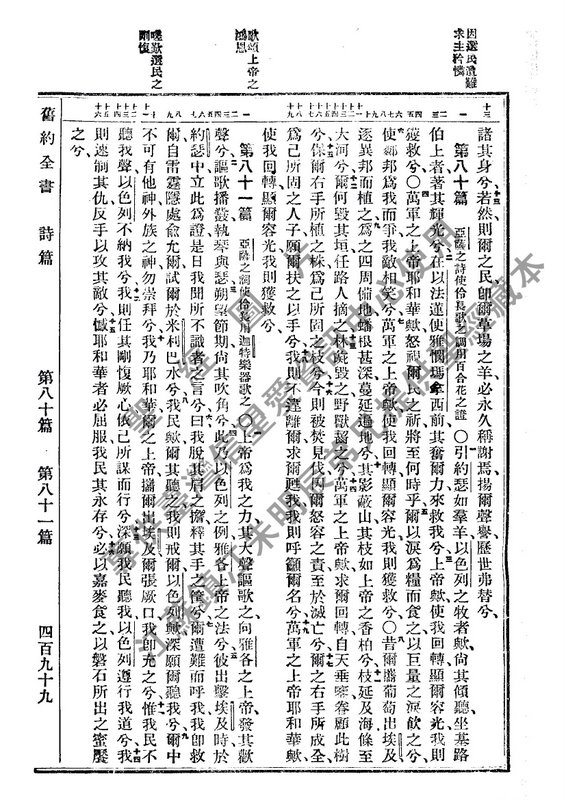 因選民遭難
求主矜憐
歌頌上帝之
鴻恩
嗟歎選民之
剛愎
諸其身兮若然則爾之民卽爾草場之羊必永久稱謝焉揚爾聲譽歷世弗替兮
第八十篇 亞薩之詩使伶長歌之調用百合花之證 ○引約瑟如羣羊以色列之牧者歟尚其傾聽坐基路
伯上者著其輝光兮在以法蓮便雅憫瑪拿西前其奮爾力來救我兮上帝歟使我回轉顯爾容光我則
獲救兮○萬軍之上帝耶和華歟怒視爾民之祈將至何時乎爾以淚為糧而食之以巨量之淚飲之兮
使鄰邦為我而爭我敵相笑兮萬軍之上帝歟使我回轉顯爾容光我則獲救兮○昔爾攜葡萄出埃及
逐異邦而植之為之四周備地蟠根甚深蔓延遍地兮其影蔽山其枝如上帝之香柏兮枝延及海條至
大河兮爾何毀其垣任路人摘之林豕毀之野獸齧之兮萬軍之上帝歟求爾回轉自天垂睞眷顧此樹
兮保爾右手所植之株為己所固之枝兮今則被焚見伐因爾怒容之責至於滅亡兮爾之右手所成全
為己所固之人子願爾扶之以手兮我則不違離爾求爾甦我我則呼籲爾名兮萬軍之上帝耶和華歟
使我回轉顯爾容光我則獲救兮
第八十一篇 亞薩之詞使伶長用迦特樂器歌之 ○上帝為我之力其大聲謳歌之向雅各之上帝發其歡
聲兮謳歌播鼗執琴與瑟朔望節期尚其吹角兮此乃以色列之例雅各上帝之法兮彼出擊埃及時於
約瑟中立此為證是日我聞所不識者之言兮曰我脫其肩之擔釋其手之筐兮爾遭難而呼我我卽救
爾自雷霆隱處俞允爾試爾於米利巴水兮我民歟爾其聽之我則戒爾以色列歟深願爾聽我兮爾中
不可有他神外族之神勿崇拜兮我乃耶和華爾之上帝攜爾出埃及爾張厥口我卽充之兮惟我民不
聽我聲以色列不納我兮我則任其剛愎厥心依己所謀而行兮深願我民聽我以色列遵行我道兮我
則速制其仇反手以攻其敵兮憾耶和華者必屈服我民其永存兮必以嘉麥食之以磐石所出之蜜饜
之兮
舊約全書 詩篇 第八十篇 第八十一篇 四百九十九